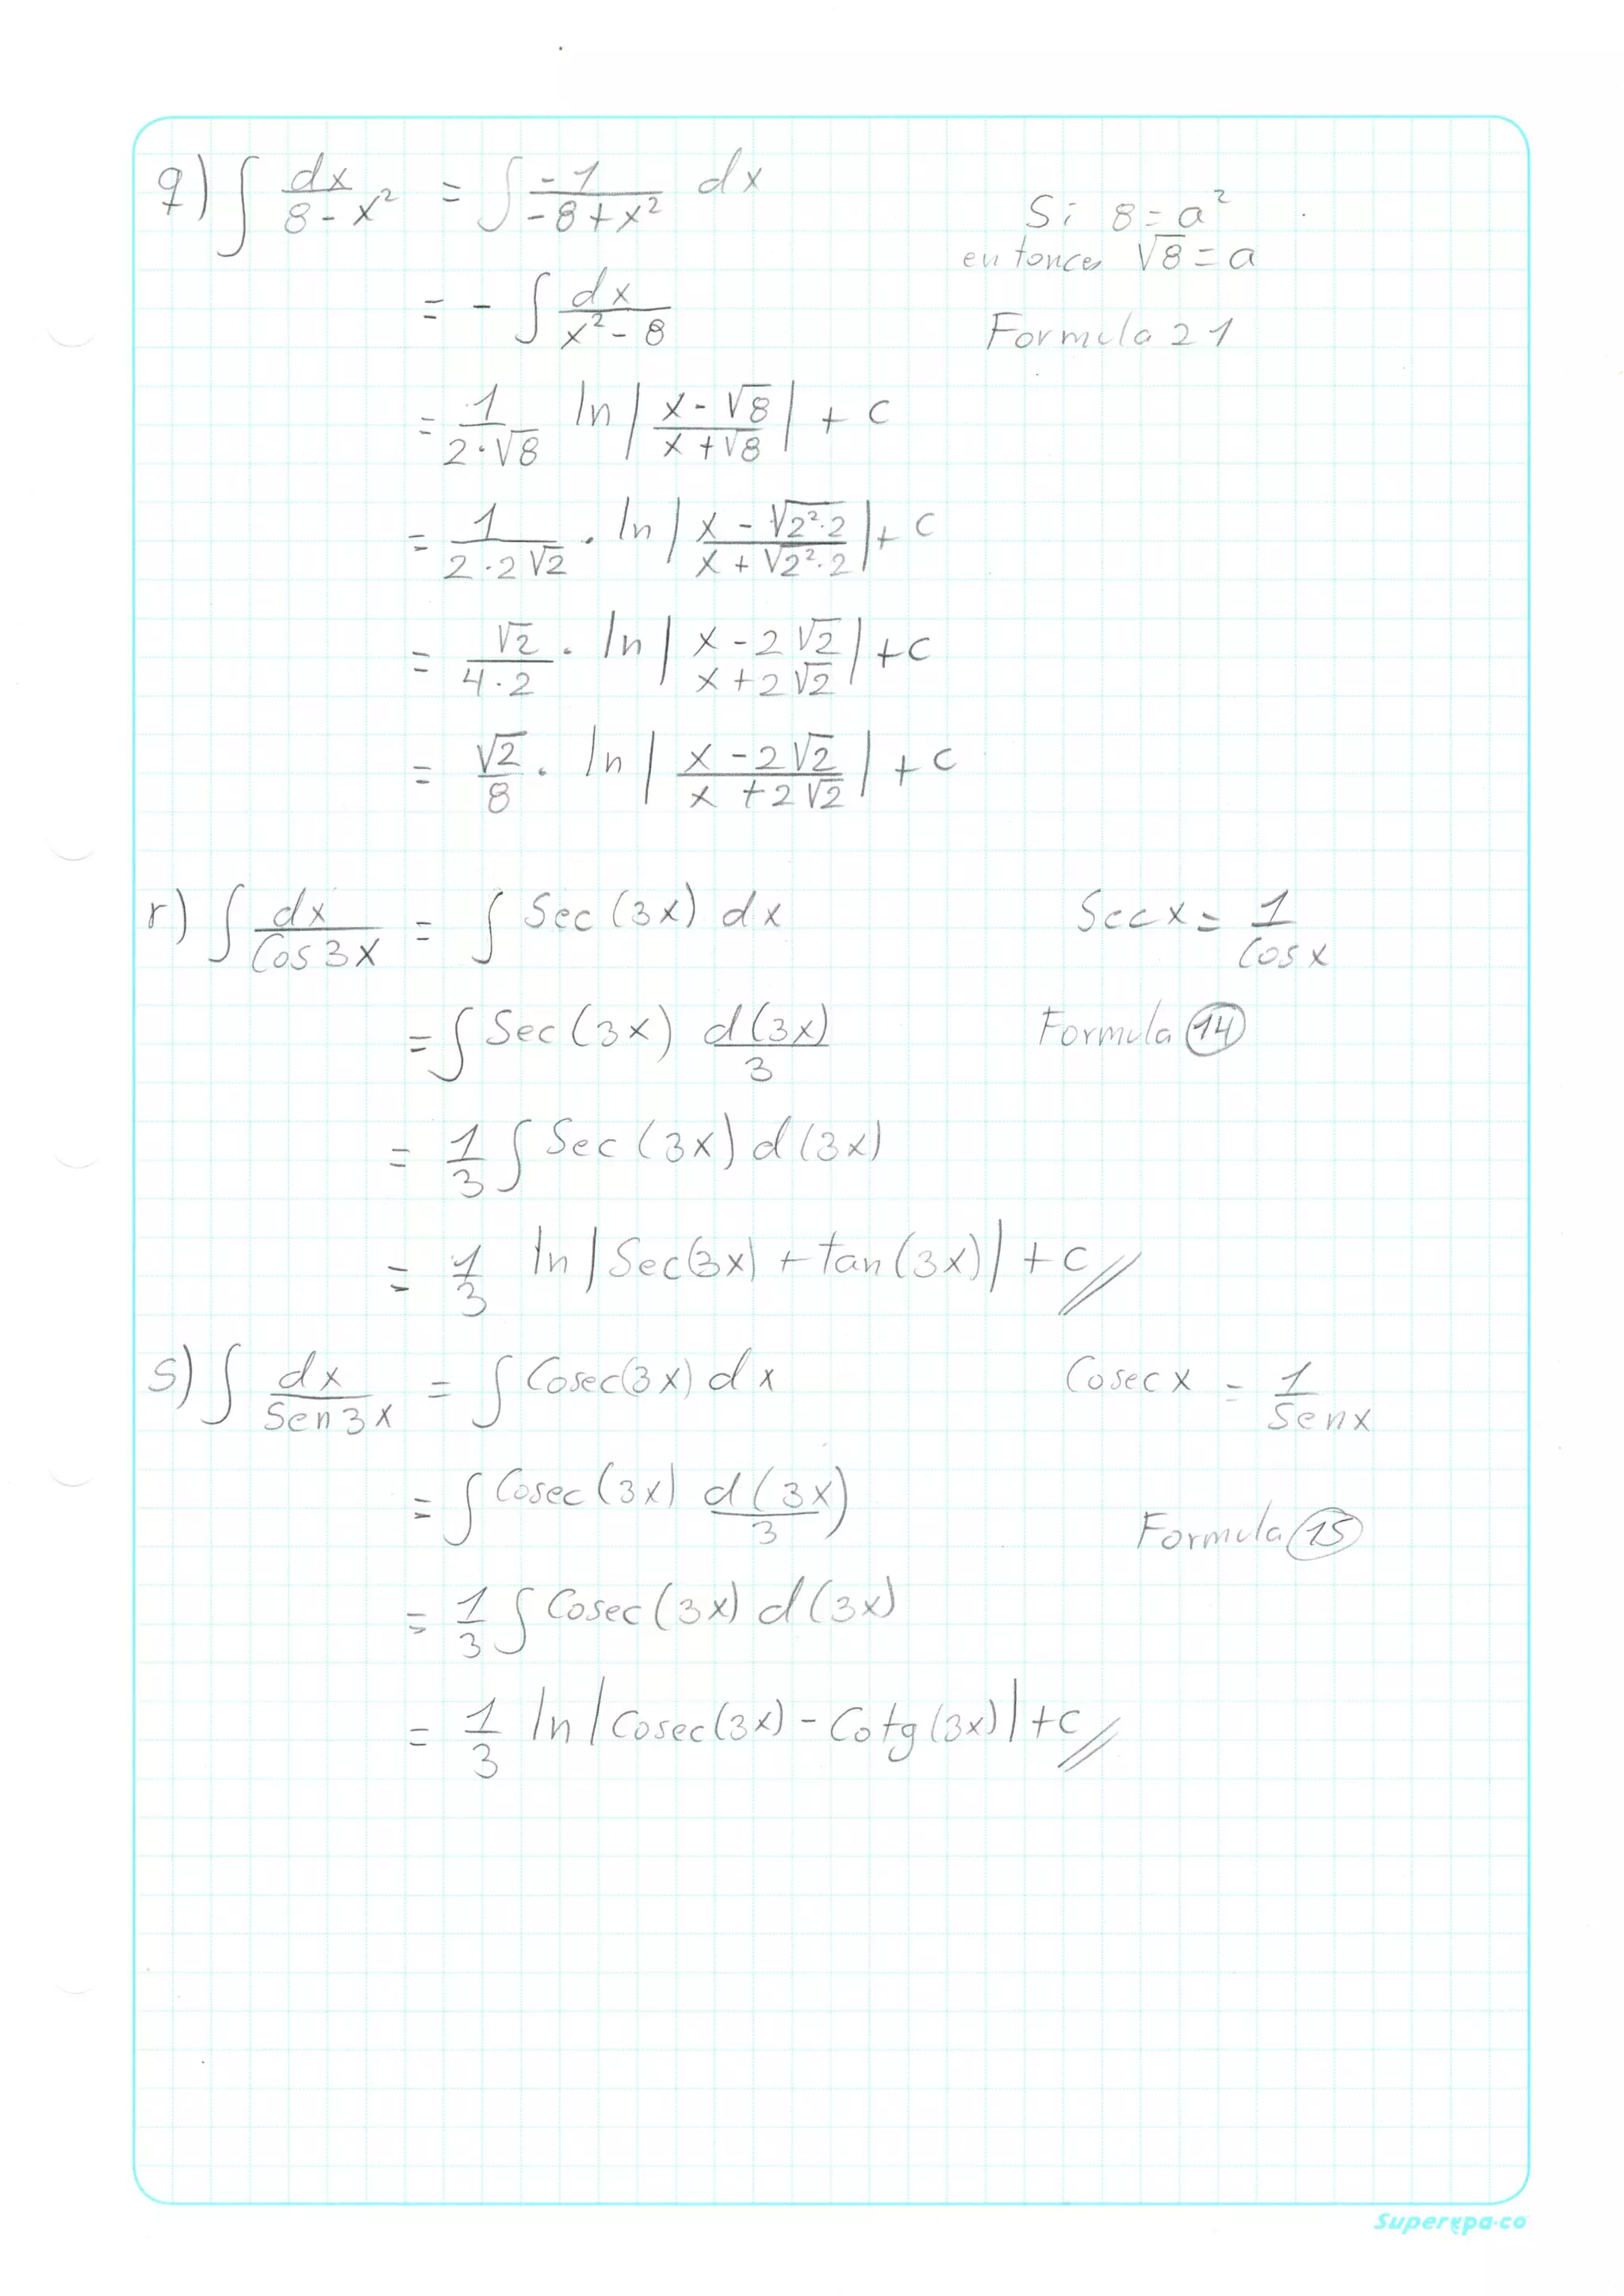 q) ∫ dx/(8 - x²) = ∫ -1/(-8 + x²) dx
Si 8 = a²
entonces √8 = a
= - ∫ dx/(x² - 8)
Formula 21
= 1/(2·√8) ln |(x - √8)/(x + √8)| + c
= 1/(2·2√2) · ln |(x - √(2²·2))/(x + √(2²·2))| + c
= √2/(4·2) · ln |x - 2√2 x + 2√2| + c
= √2/8 · ln |(x - 2√2)/(x + 2√2)| + c
r) ∫ dx/(Cos 3x) = ∫ Sec (3x) dx
Sec x = 1/(Cos x)
= ∫ Sec (3x) d(3x)/3
Formula 14
= 1/3 ∫ Sec (3x) d(3x)
= 1/3 ln |Sec(3x) + tan(3x)| + c //
s) ∫ dx/(Sen 3x) = ∫ Cosec(3x) dx
Cosec x = 1/(Sen x)
= ∫ Cosec (3x) d(3x)/3
Formula 15
= 1/3 ∫ Cosec (3x) d(3x)
= 1/3 ln |Cosec(3x) - Cotg(3x)| + c //
Superepa.co